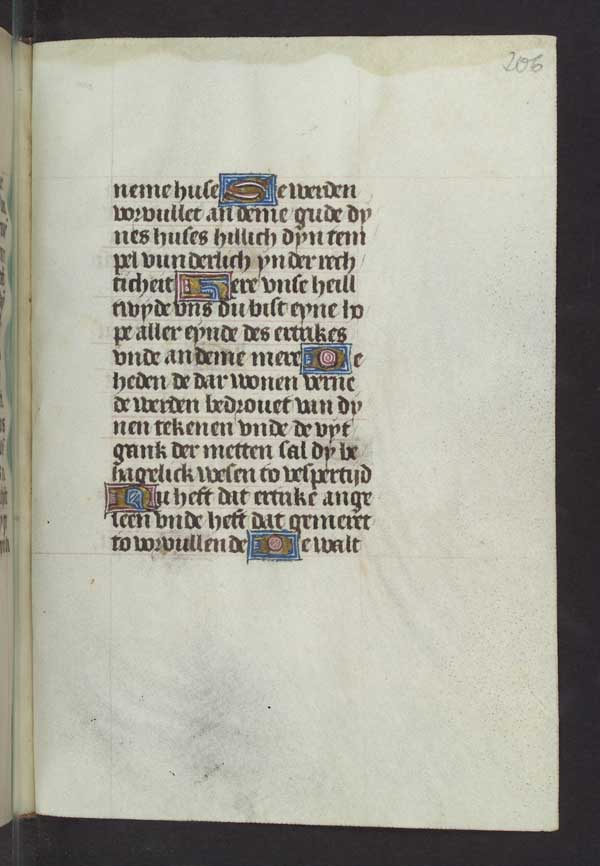 205
neme huse Se werden
vorvullet an deme gude dy
nes huses hillich dyn tem
pel vunderlich yn der rech
ticheit Here vnse heill
twyde vns du bist eyne ho
pe aller eynde des ertrikes
vnde an deme mere De
heden de dar wonen verne
de werden bedrouet van dy
nen tekenen vnde de vyt
gank der metten sal dy be
hagelick wesen to vespertijd
Du heft dat ertrike ange
seen vnde heft dat gemeret
to vorvullende De walt